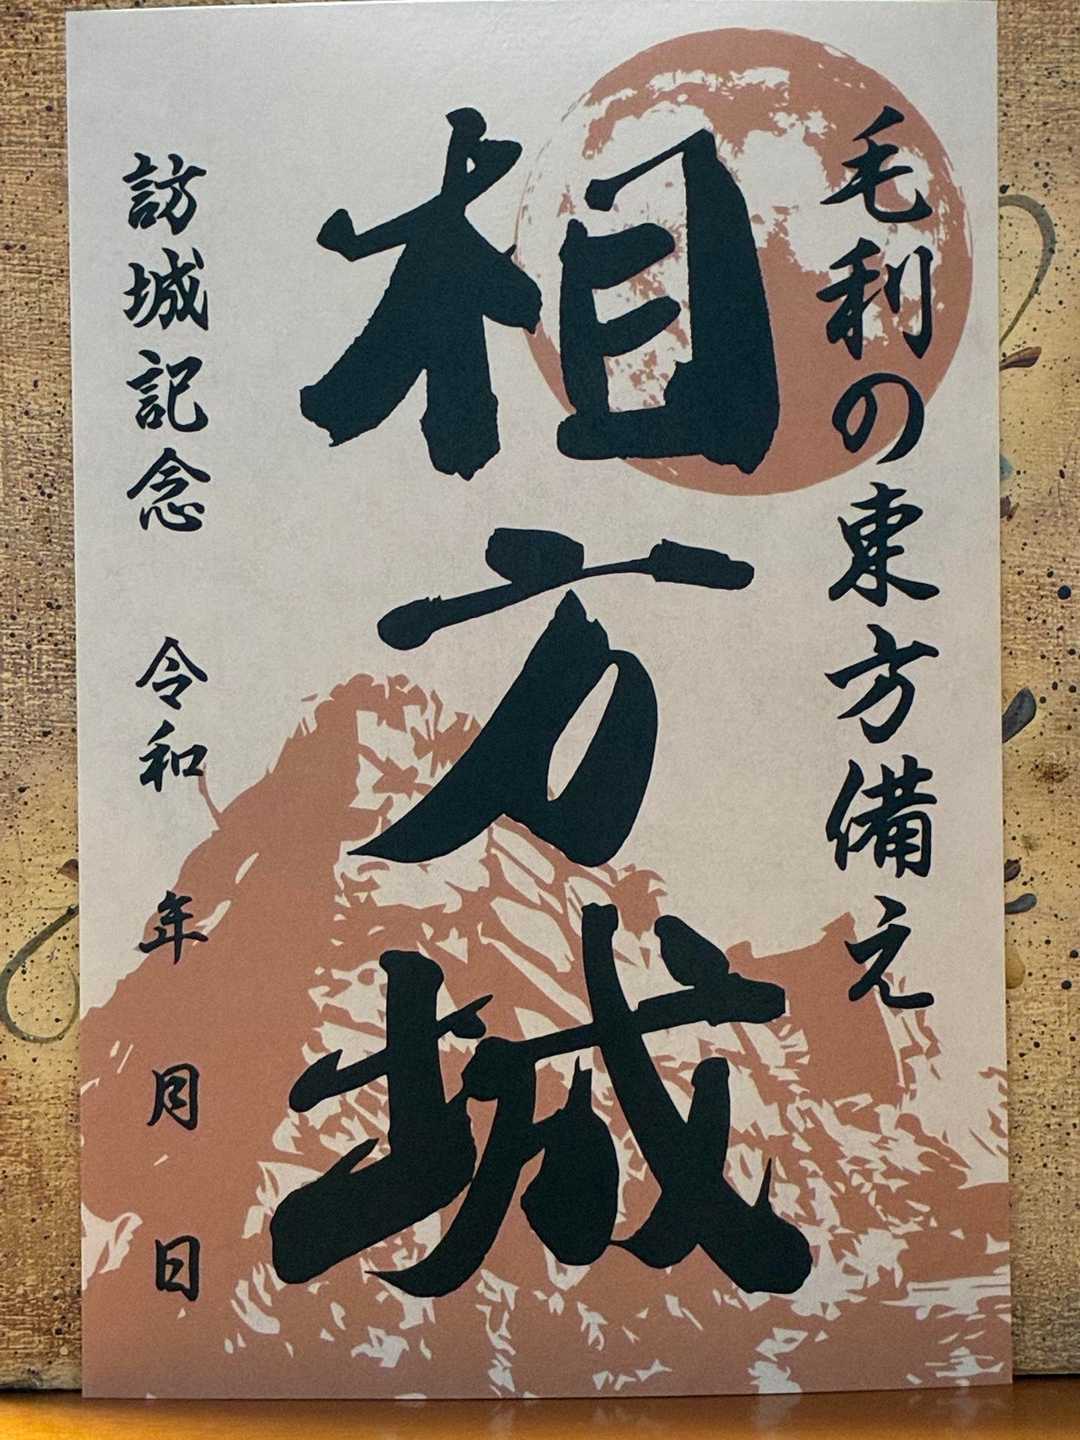 毛利の東方備え
相方城
訪城記念 令和 年 月 日